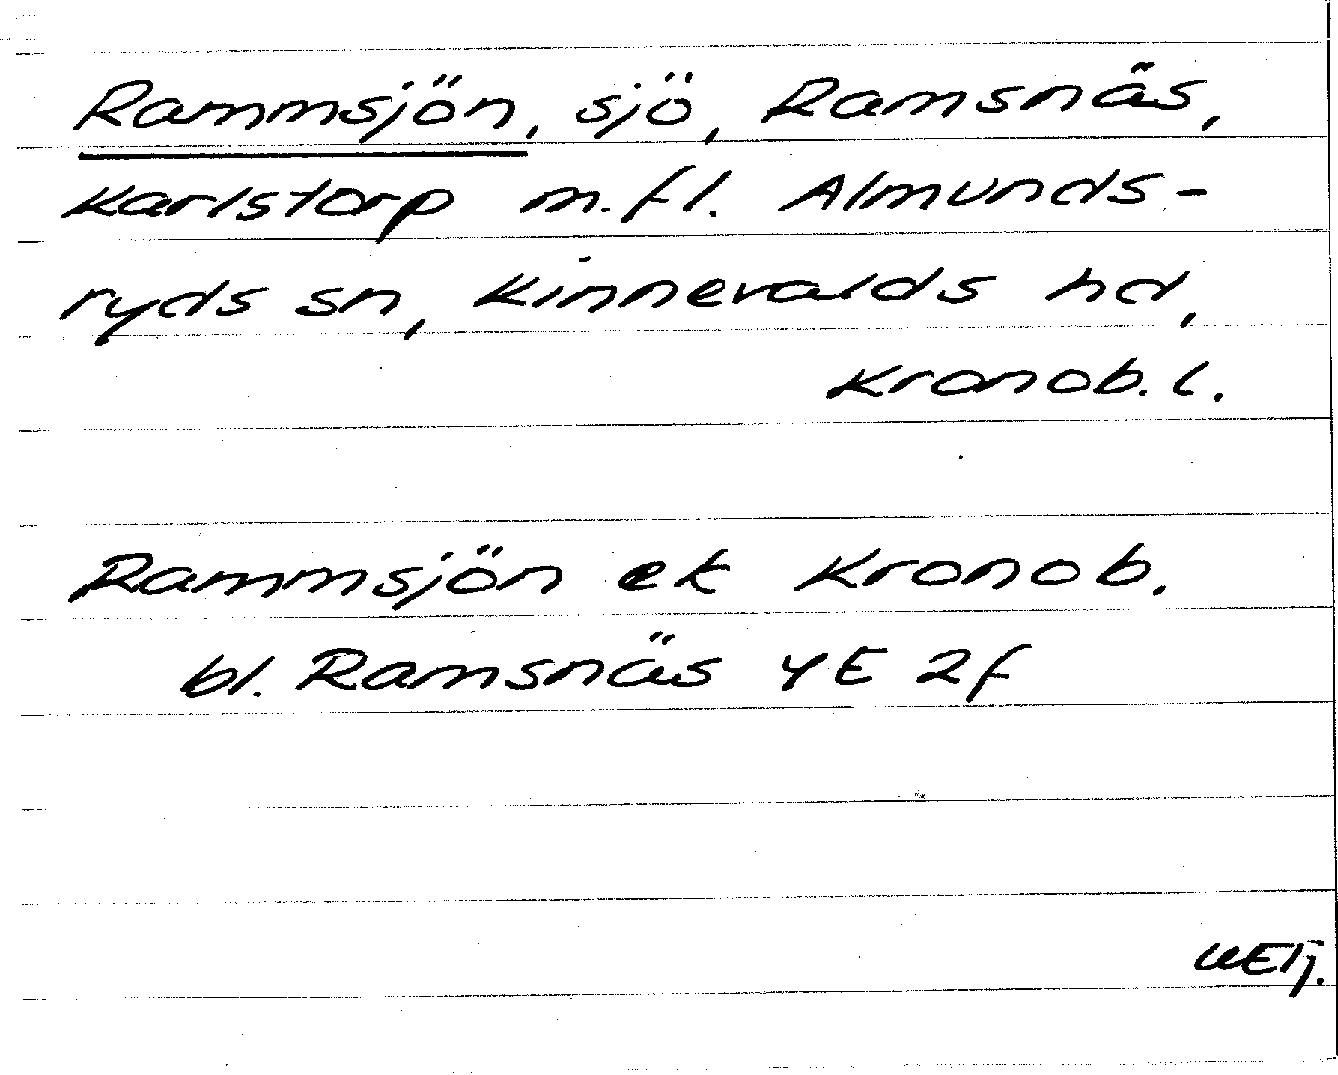 Rammsjön, sjö, Ramsnäs,
Karlstorp m.fl. Almunds-
ryds sn, Kinnevalds hd,
Kronob. l.
Rammsjön ek Kronob.
bl. Ramsnäs 4E 2f